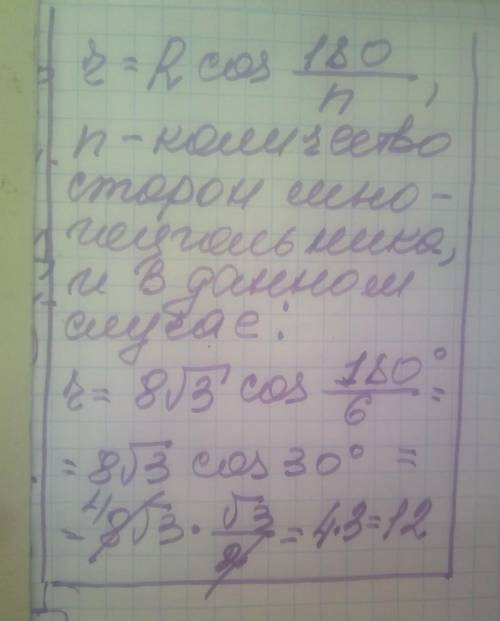 r = R cos 180/n,
n - количество
сторон мно-
гоугольника,
и в данном
случае:
r = 8√3 cos 180°/6 =
= 8√3 cos 30° =
= 4 8√3 · √3/2 = 4·3 = 12